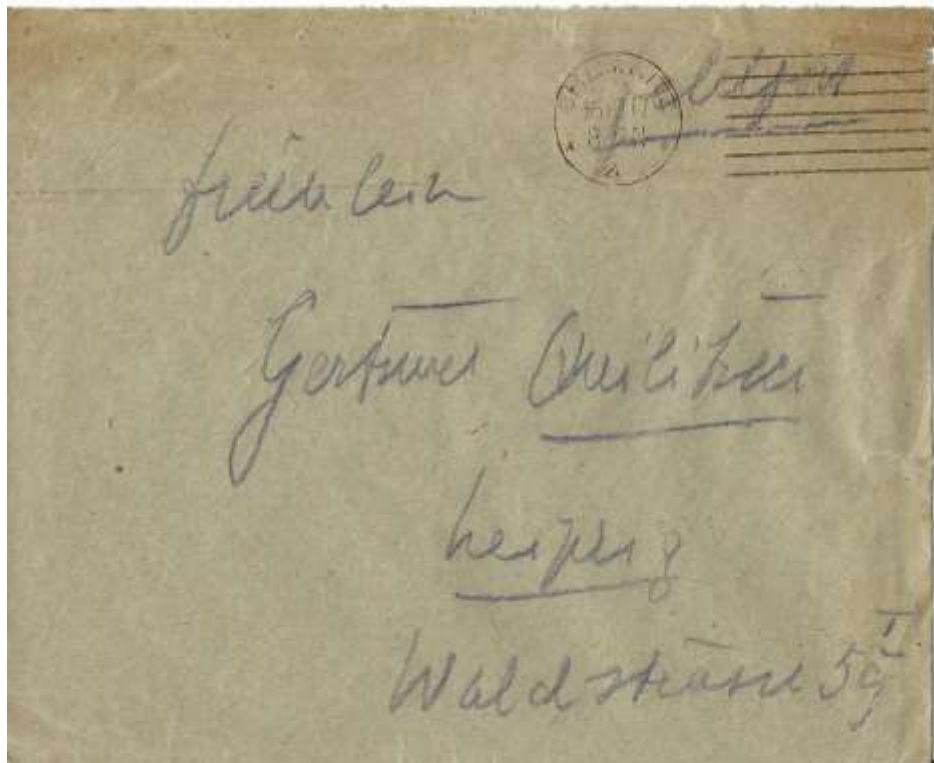 Feldpost
Fräulein
Gertrud
Leipzig
Waldstrasse 59 I